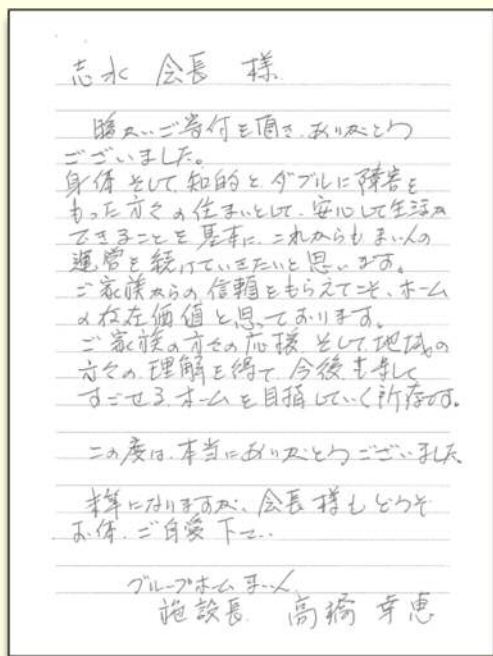 志水 会長 様
暖かいご寄付を頂き、ありがとう
ございました。
身体 そして 知的と ダブルに 障害を
もった方々の住まいとして、安心して生活が
できることを 基本に、これからも まいんの
運営を続けていきたいと思います。
ご家族からの信頼をもらえてこそ、ホーム
の存在価値と思っております。
ご家族の方々の応援 そして地域の
方々の理解を得て 今後も楽しく
すごせる ホームを目指していく所存です。
この度は、本当にありがとうございました
末筆になりますが、会長様も どうぞ
お体、ご自愛 下さい
グループホーム まいん
施設長 高橋 幸恵